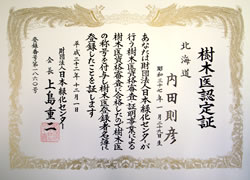 樹木医認定証
北海道
内田則彦
昭和三十七年一月二十九日生
あなたは財団法人日本緑化センターが
行う樹木医資格審査・証明事業による
樹木医資格審査に合格したので樹木医
の称号を付与し樹木医登録者名簿に
登録したことを証します
平成二十一年十二月一日
財団法人日本緑化センター
会長 上島重二
登録番号第一八六〇号